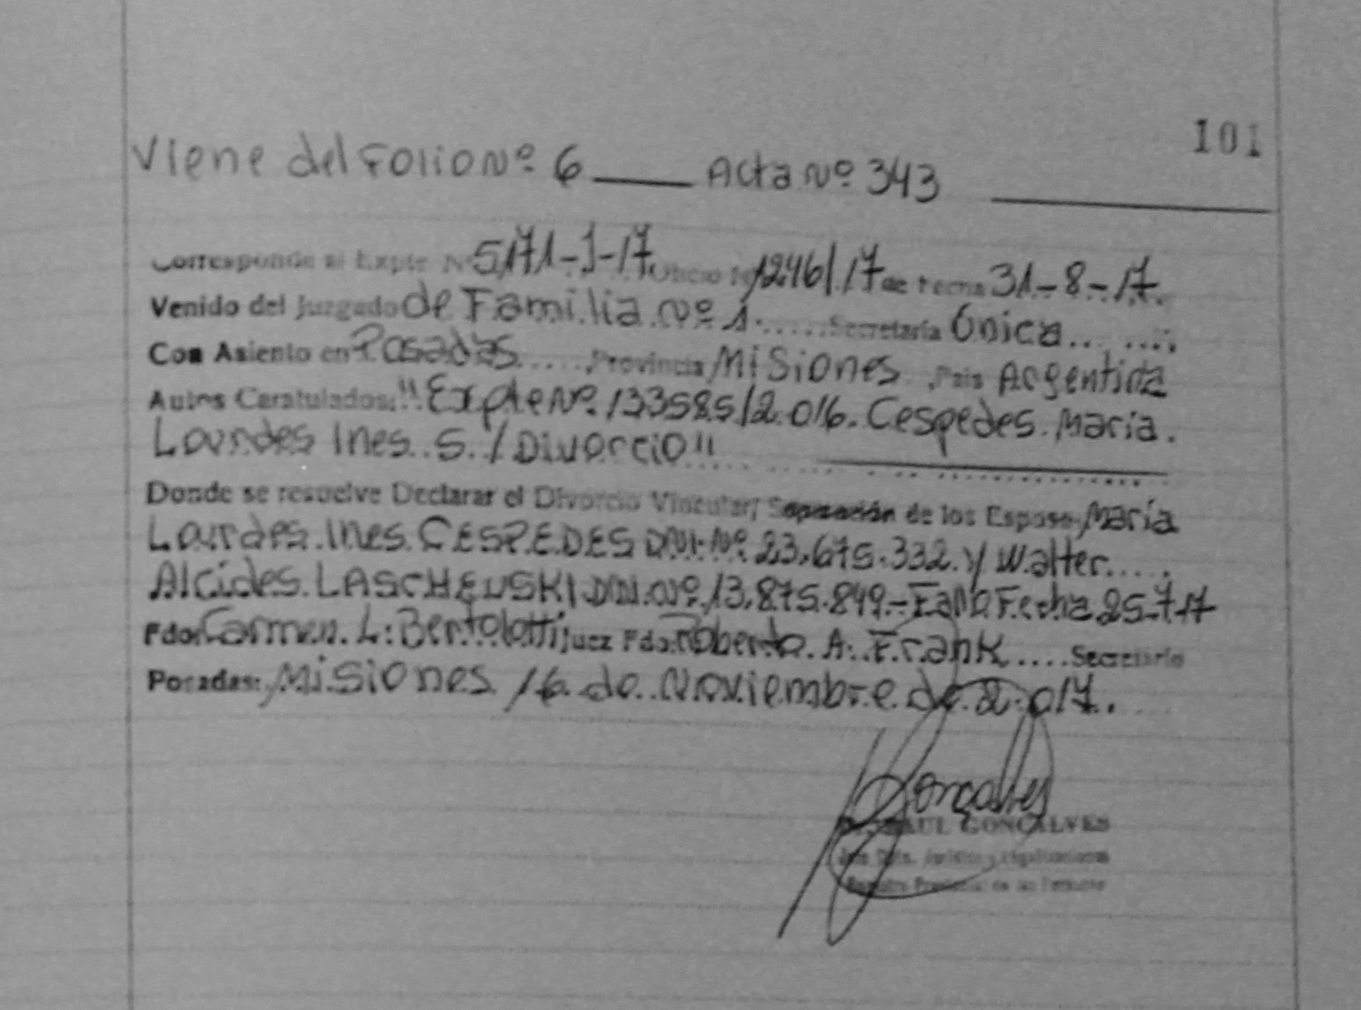 101
Viene del Folio Nº 6 ____ Acta Nº 343
Corresponde al Expte Nº 5171-J-17 Oficio Nº 1246/17 de fecha 31-8-17.
Venido del Juzgado de Familia Nº 1......Secretaría Única......
Con Asiento en Posadas.....Provincia Misiones. País Argentina
Autos Caratulados: "Expte Nº 133585/2.016. Cespedes. Maria.
Lourdes Ines. S./Divorcio"
Donde se resuelve Declarar el Divorcio Vincular; Separación de los Esposos María
Lourdes. Ines. CESPEDES DNI. Nº 23.675.332. y Walter.....
Alcides. LASCHEWSKI DNI. Nº 13.875.849.- Fallo Fecha 25-7-17
Fdo: Carmen. L: Bertolotti Juez Fdo: Roberto. A. Frank....Secretario
Posadas: Misiones 16 de Noviembre de 2.017.
Gonçalves
RAUL GONÇALVES
Jefe Dpto. Jurídico y Legalizaciones
Registro Provincial de las Personas